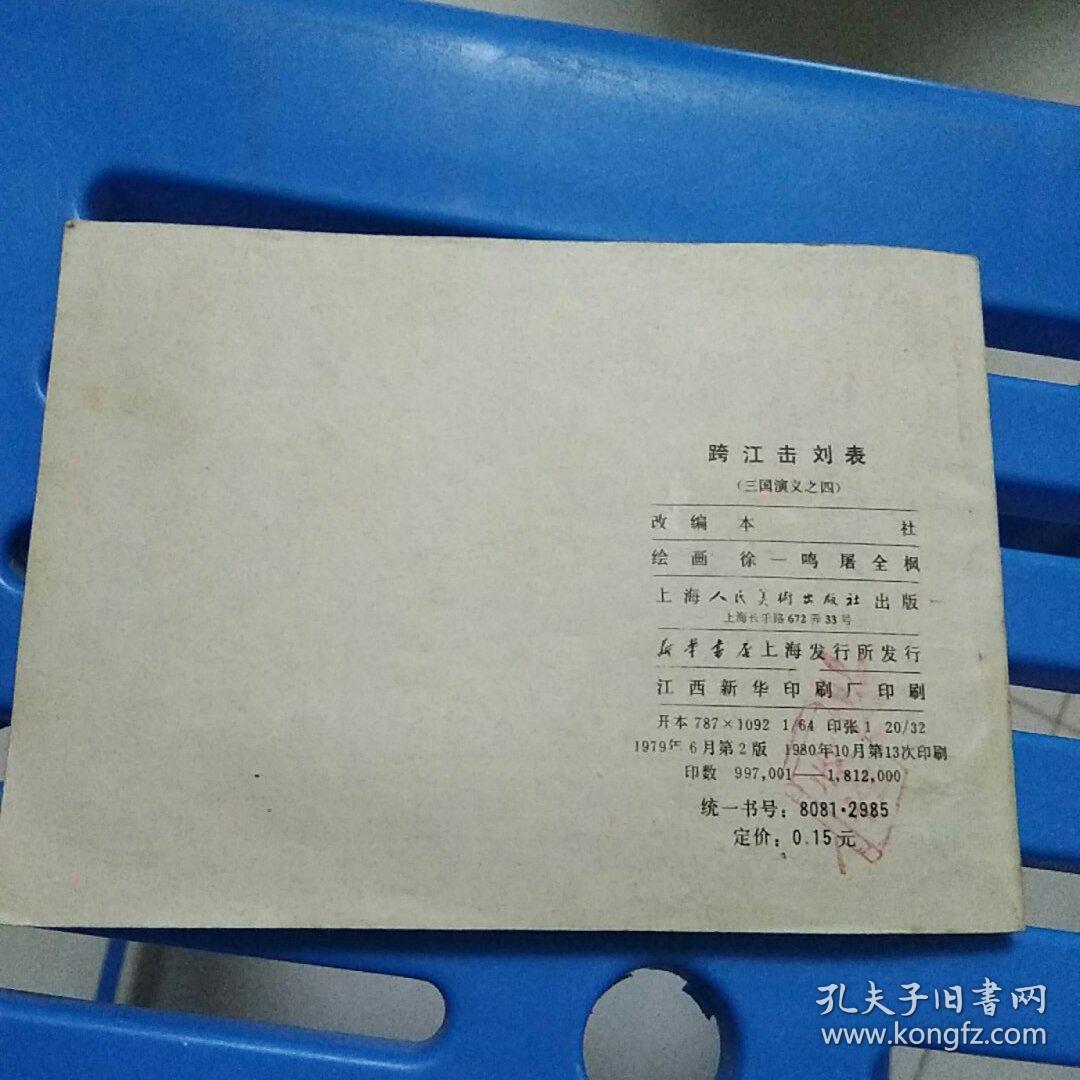 跨江击刘表
(三国演义之四)
改编 本 社
绘画 徐一鸣 屠全枫
上海人民美術出版社出版
上海长乐路672弄33号
新华书店上海发行所发行
江西新华印刷厂印刷
开本 787×1092 1/64 印张 1 20/32
1979年6月第2版 1980年10月第13次印刷
印数 997,001——1,812,000
统一书号：8081·2985
定价：0.15元
孔夫子旧書网
www.kongfz.com